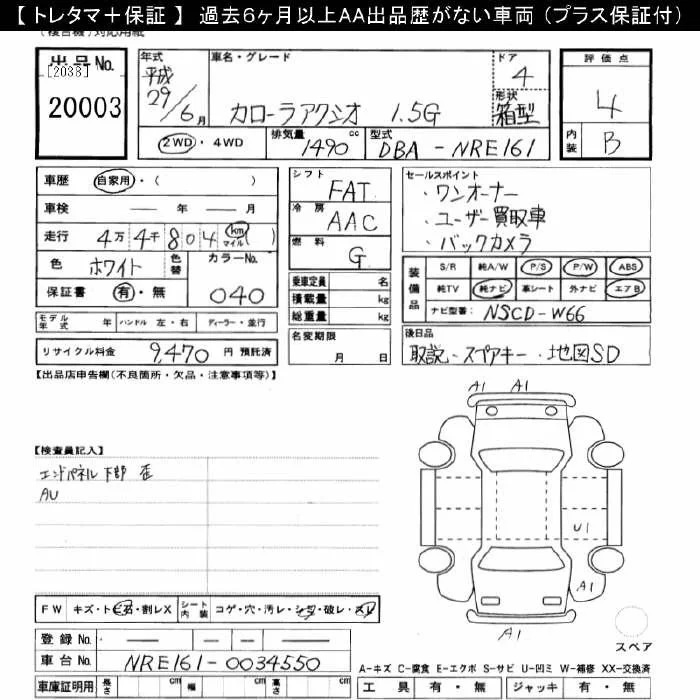 【 トレタマ＋保証 】 過去6ヶ月以上AA出品歴がない車両（プラス保証付）
出品No.
[2038]
20003
年式
平成
29/6月
車名・グレード
カローラアクシオ 1.5G
ドア
4
形状
箱型
評価点
4
内装
B
2WD・4WD
排気量
1490 cc
型式
DBA-NRE161
車歴 自家用・( )
車検 ― 年 ― 月
走行 4万4千804 km マイル ( )
色 ホワイト
色替
カラーNo.
040
保証書 有・無
モデル年式 年 ハンドル 左・右 ディーラー・並行
リサイクル料金 9,470 円 預託済
シフト
FAT
冷房
AAC
燃料
G
乗車定員 名
積載量 kg
総重量 kg
名変期限
月 日
セールスポイント
・ワンオーナー
・ユーザー買取車
・バックカメラ
装備品
S/R 純A/W P/S P/W ABS
純TV 純ナビ 革シート 外ナビ エアB
ナビ型番: NSCD-W66
後日品
取説・スペアキー・地図SD
【出品店申告欄(不良箇所・欠品・注意事項等)】
【検査員記入】
エンドパネル下部 歪
AU
A1 A1
U1
A1
A1
スペア
FW キズ・トビ石・割レX
シート内装 コゲ・穴・汚レ・シワ・破レ・スレ
登録No. ― ― ―
車台No. NRE161-0034550
車庫証明用 長さ cm 幅 cm 高さ cm
A-キズ C-腐食 E-エクボ S-サビ U-凹ミ W-補修 XX-交換済
工具 有・無 ジャッキ 有・無